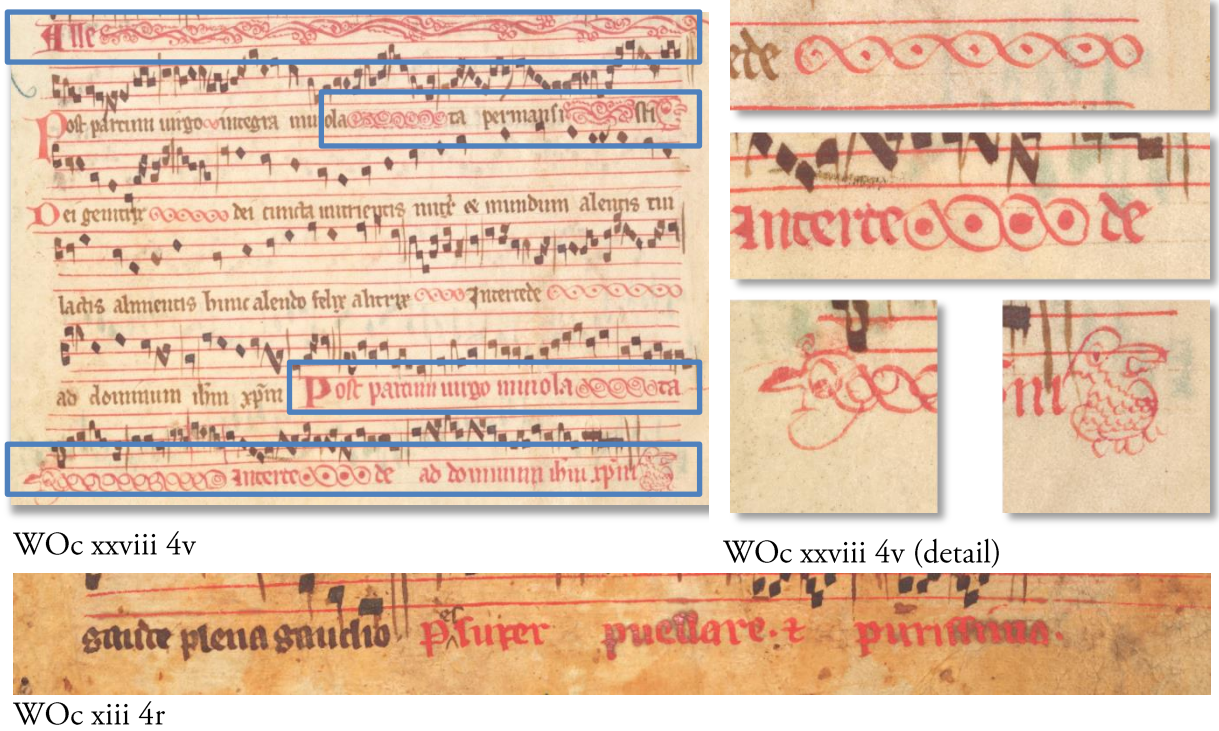 Alle
Post partum uirgo integra muiola ta permansi sti
Dei genitrix dei cuncta nutrientis nutrix & mundum alentis tui
lactis alimentis hunc alendo felix altrix Intercede
ad dominum ihm xpm Post partum uirgo muiola ta
Interce de ad dominum ihm xpm
ede
Interce de
m
WOc xxviii 4v
WOc xxviii 4v (detail)
gaude plena gaudio puellare. purissima.
WOc xiii 4r